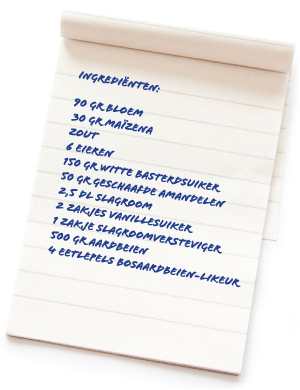 INGREDIËNTEN:
90 GR BLOEM
30 GR MAÏZENA
ZOUT
6 EIEREN
150 GR WITTE BASTERDSUIKER
50 GR GESCHAAFDE AMANDELEN
2,5 DL SLAGROOM
2 ZAKJES VANILLESUIKER
1 ZAKJE SLAGROOMVERSTEVIGER
500 GR AARDBEIEN
4 EETLEPELS BOSAARDBEIEN-LIKEUR